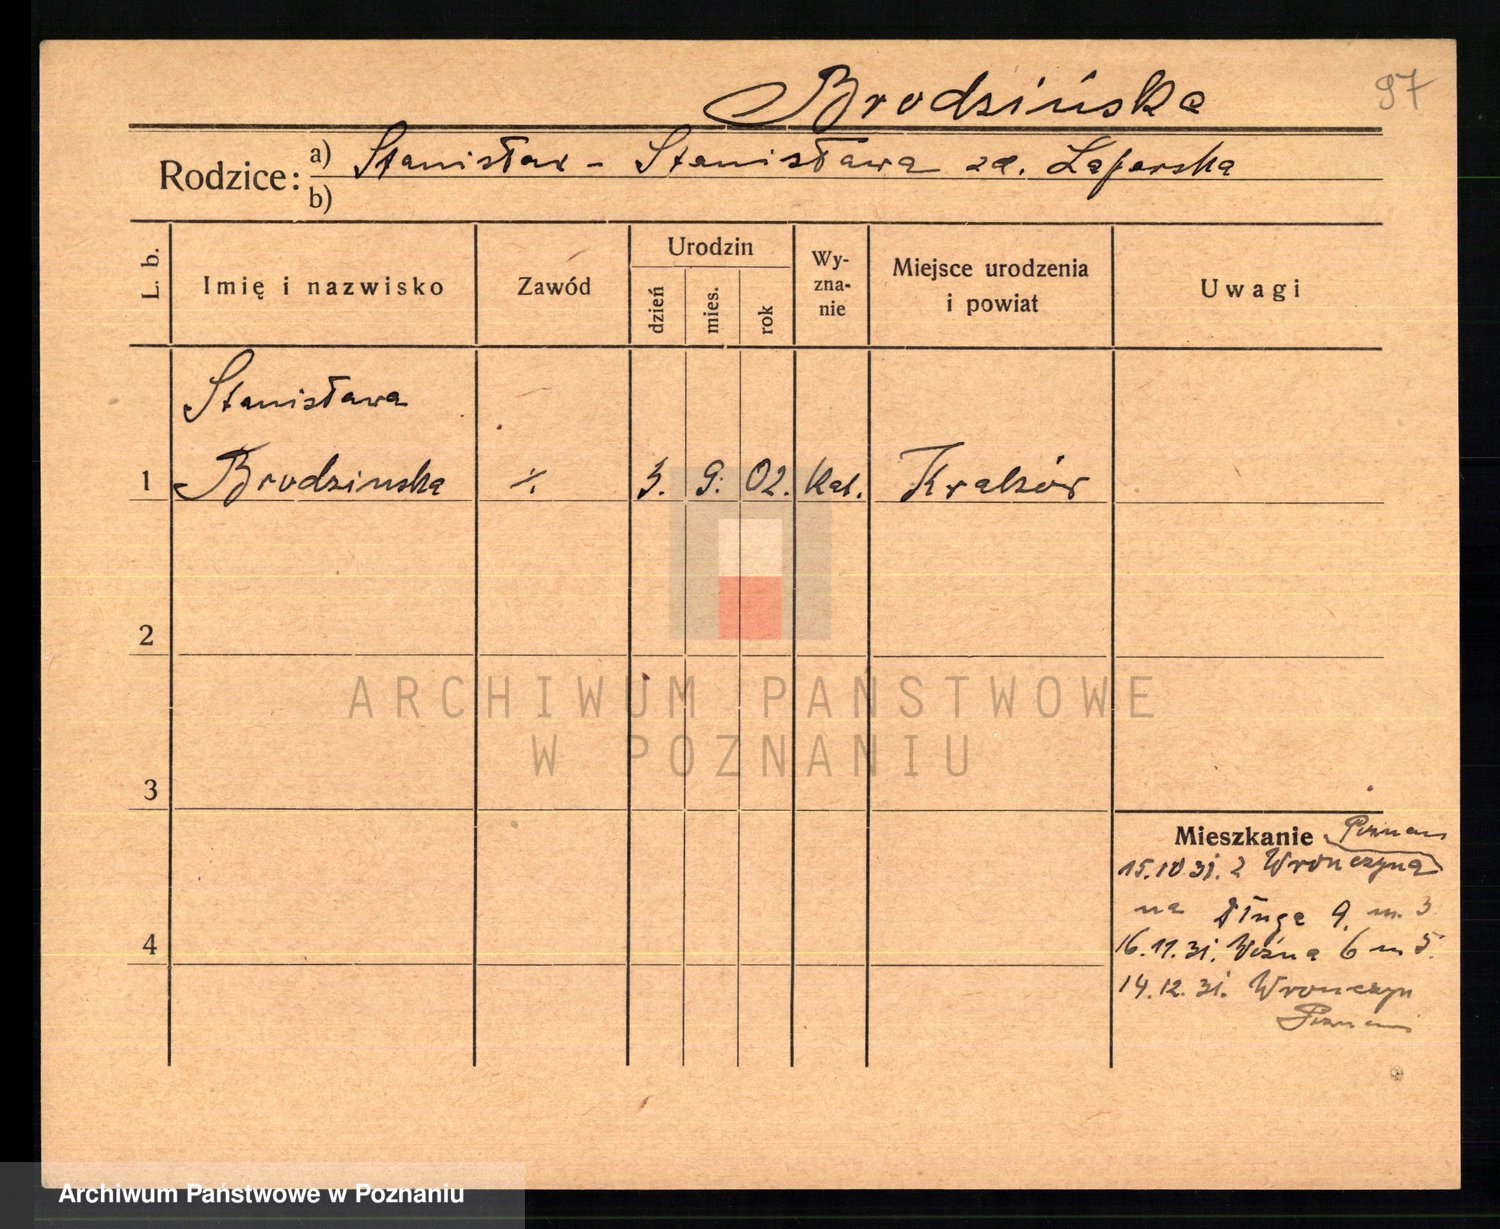 97
Brodzińska
Rodzice: a) Stanisław - Stanisława zd.
b)
L. b.
Imię i nazwisko
Zawód
Urodzin
dzień
mies.
rok
Wy-
zna-
nie
Miejsce urodzenia
i powiat
Uwagi
Stanisława
1 Brodzinska ./. 3. 9. 02. kat. Kraków
2
ARCHIWUM PAŃSTWOWE
W POZNANIU
3
Mieszkanie Poznań
15.10 31. z Wronczyna
na Długą 9. m. 3
4
16.11.31. Woźna 6 m 5.
14.12.31. Wronczyn
Poznań
Archiwum Państwowe w Poznaniu